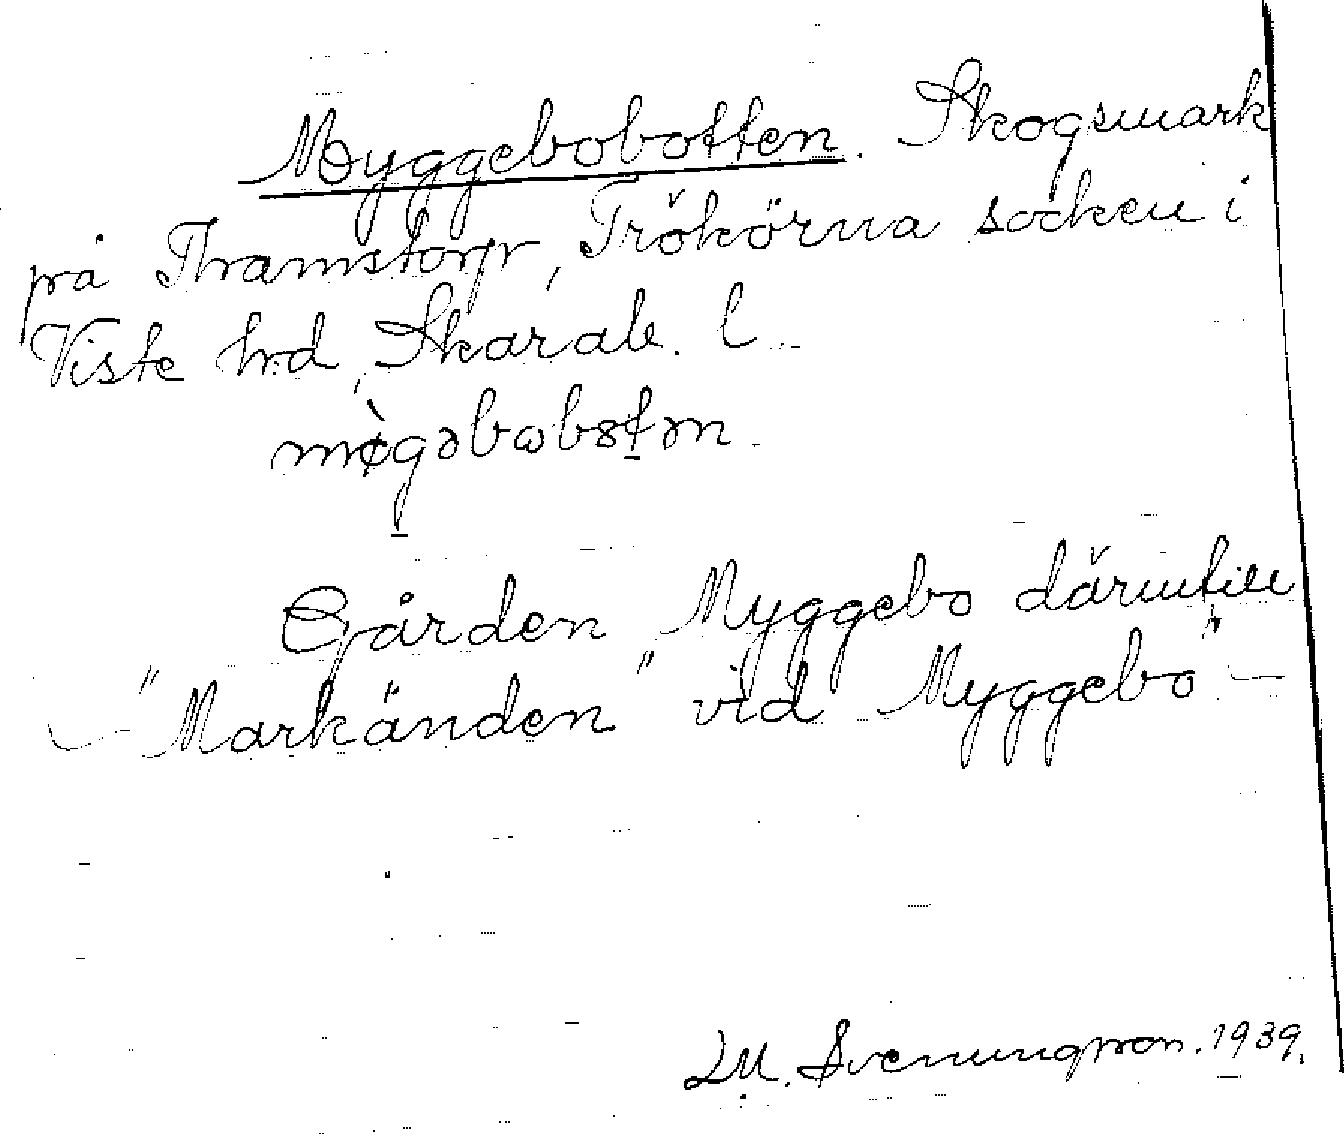 Myggebobotten. Skogsmark
på Thramstorp, Trökörna socken i
Viste hd, Skarab. l
mø̀gəbωbɞtən.
Gården Myggebo därintill
- "Markänden" vid "Myggebo" -
Svenungsson. 1939.